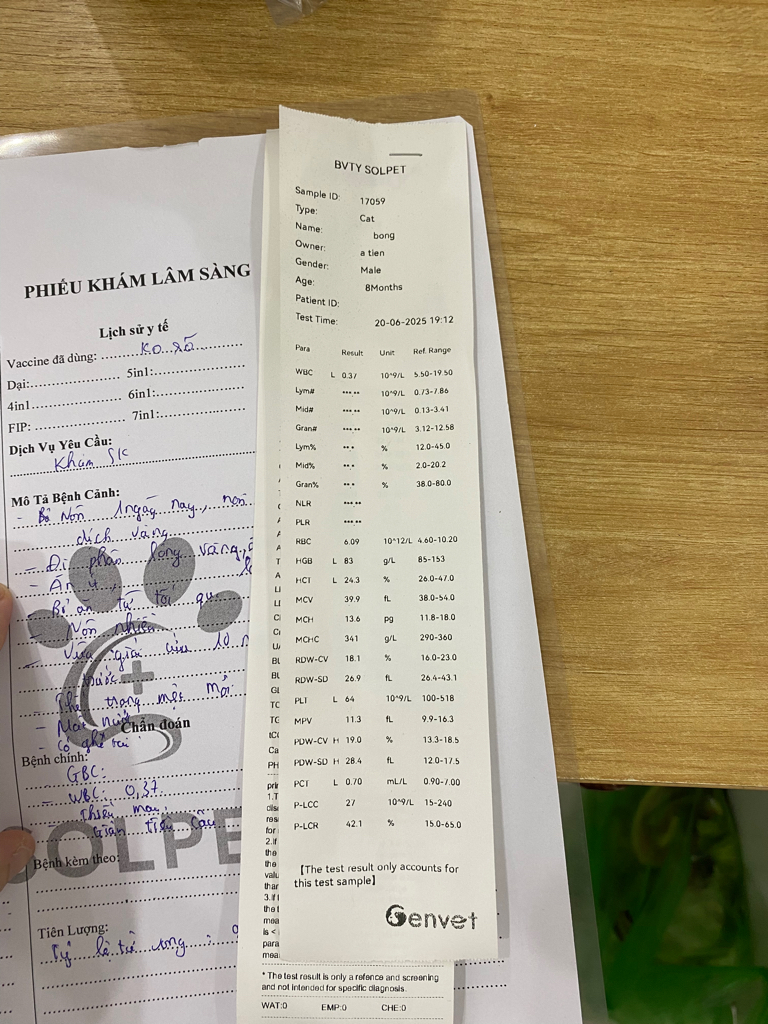 PHIẾU KHÁM LÂM SÀNG
Lịch sử y tế
Vaccine đã dùng: ko rõ
Dại: 5in1:
4in1 6in1:
FIP: 7in1:
Dịch Vụ Yêu Cầu:
Khám SK
Mô Tả Bệnh Cảnh:
- Bị Nôn 1 ngày nay, nôn
dịch vàng
- Đi phân lỏng vàng,
- Ăn ít,
- Bỏ ăn từ tối qua
- Nôn nhiều
- Vừa giải cứu 10
trước
- Thể trạng mệt mỏi
-
- Có ghẻ tai
Chẩn đoán
Bệnh chính:
GBC:
- WBC: 0,37
Thiếu máu
Giảm tiểu cầu
Bệnh kèm theo:
Tiên Lượng:
Tỷ lệ tử vong
SOLPE
BVTY SOLPET
Sample ID: 17059
Type: Cat
Name: bong
Owner: a tien
Gender: Male
Age: 8Months
Patient ID:
Test Time: 20-06-2025 19:12
Para Result Unit Ref. Range
WBC L 0.37 10^9/L 5.50-19.50
Lym# *** ** 10^9/L 0.73-7.86
Mid# *** ** 10^9/L 0.13-3.41
Gran# *** ** 10^9/L 3.12-12.58
Lym% ** * % 12.0-45.0
Mid% ** * % 2.0-20.2
Gran% ** * % 38.0-80.0
NLR *** **
PLR *** **
RBC 6.09 10^12/L 4.60-10.20
HGB L 83 g/L 85-153
HCT L 24.3 % 26.0-47.0
MCV 39.9 fL 38.0-54.0
MCH 13.6 pg 11.8-18.0
MCHC 341 g/L 290-360
RDW-CV 18.1 % 16.0-23.0
RDW-SD 26.9 fL 26.4-43.1
PLT L 64 10^9/L 100-518
MPV 11.3 fL 9.9-16.3
PDW-CV H 19.0 % 13.3-18.5
PDW-SD H 28.4 fL 12.0-17.5
PCT L 0.70 mL/L 0.90-7.00
P-LCC 27 10^9/L 15-240
P-LCR 42.1 % 15.0-65.0
【The test result only accounts for
this test sample】
Genvet
* The test result is only a refence and screening
and not intended for specific diagnosis.
WAT:0 EMP:0 CHE:0